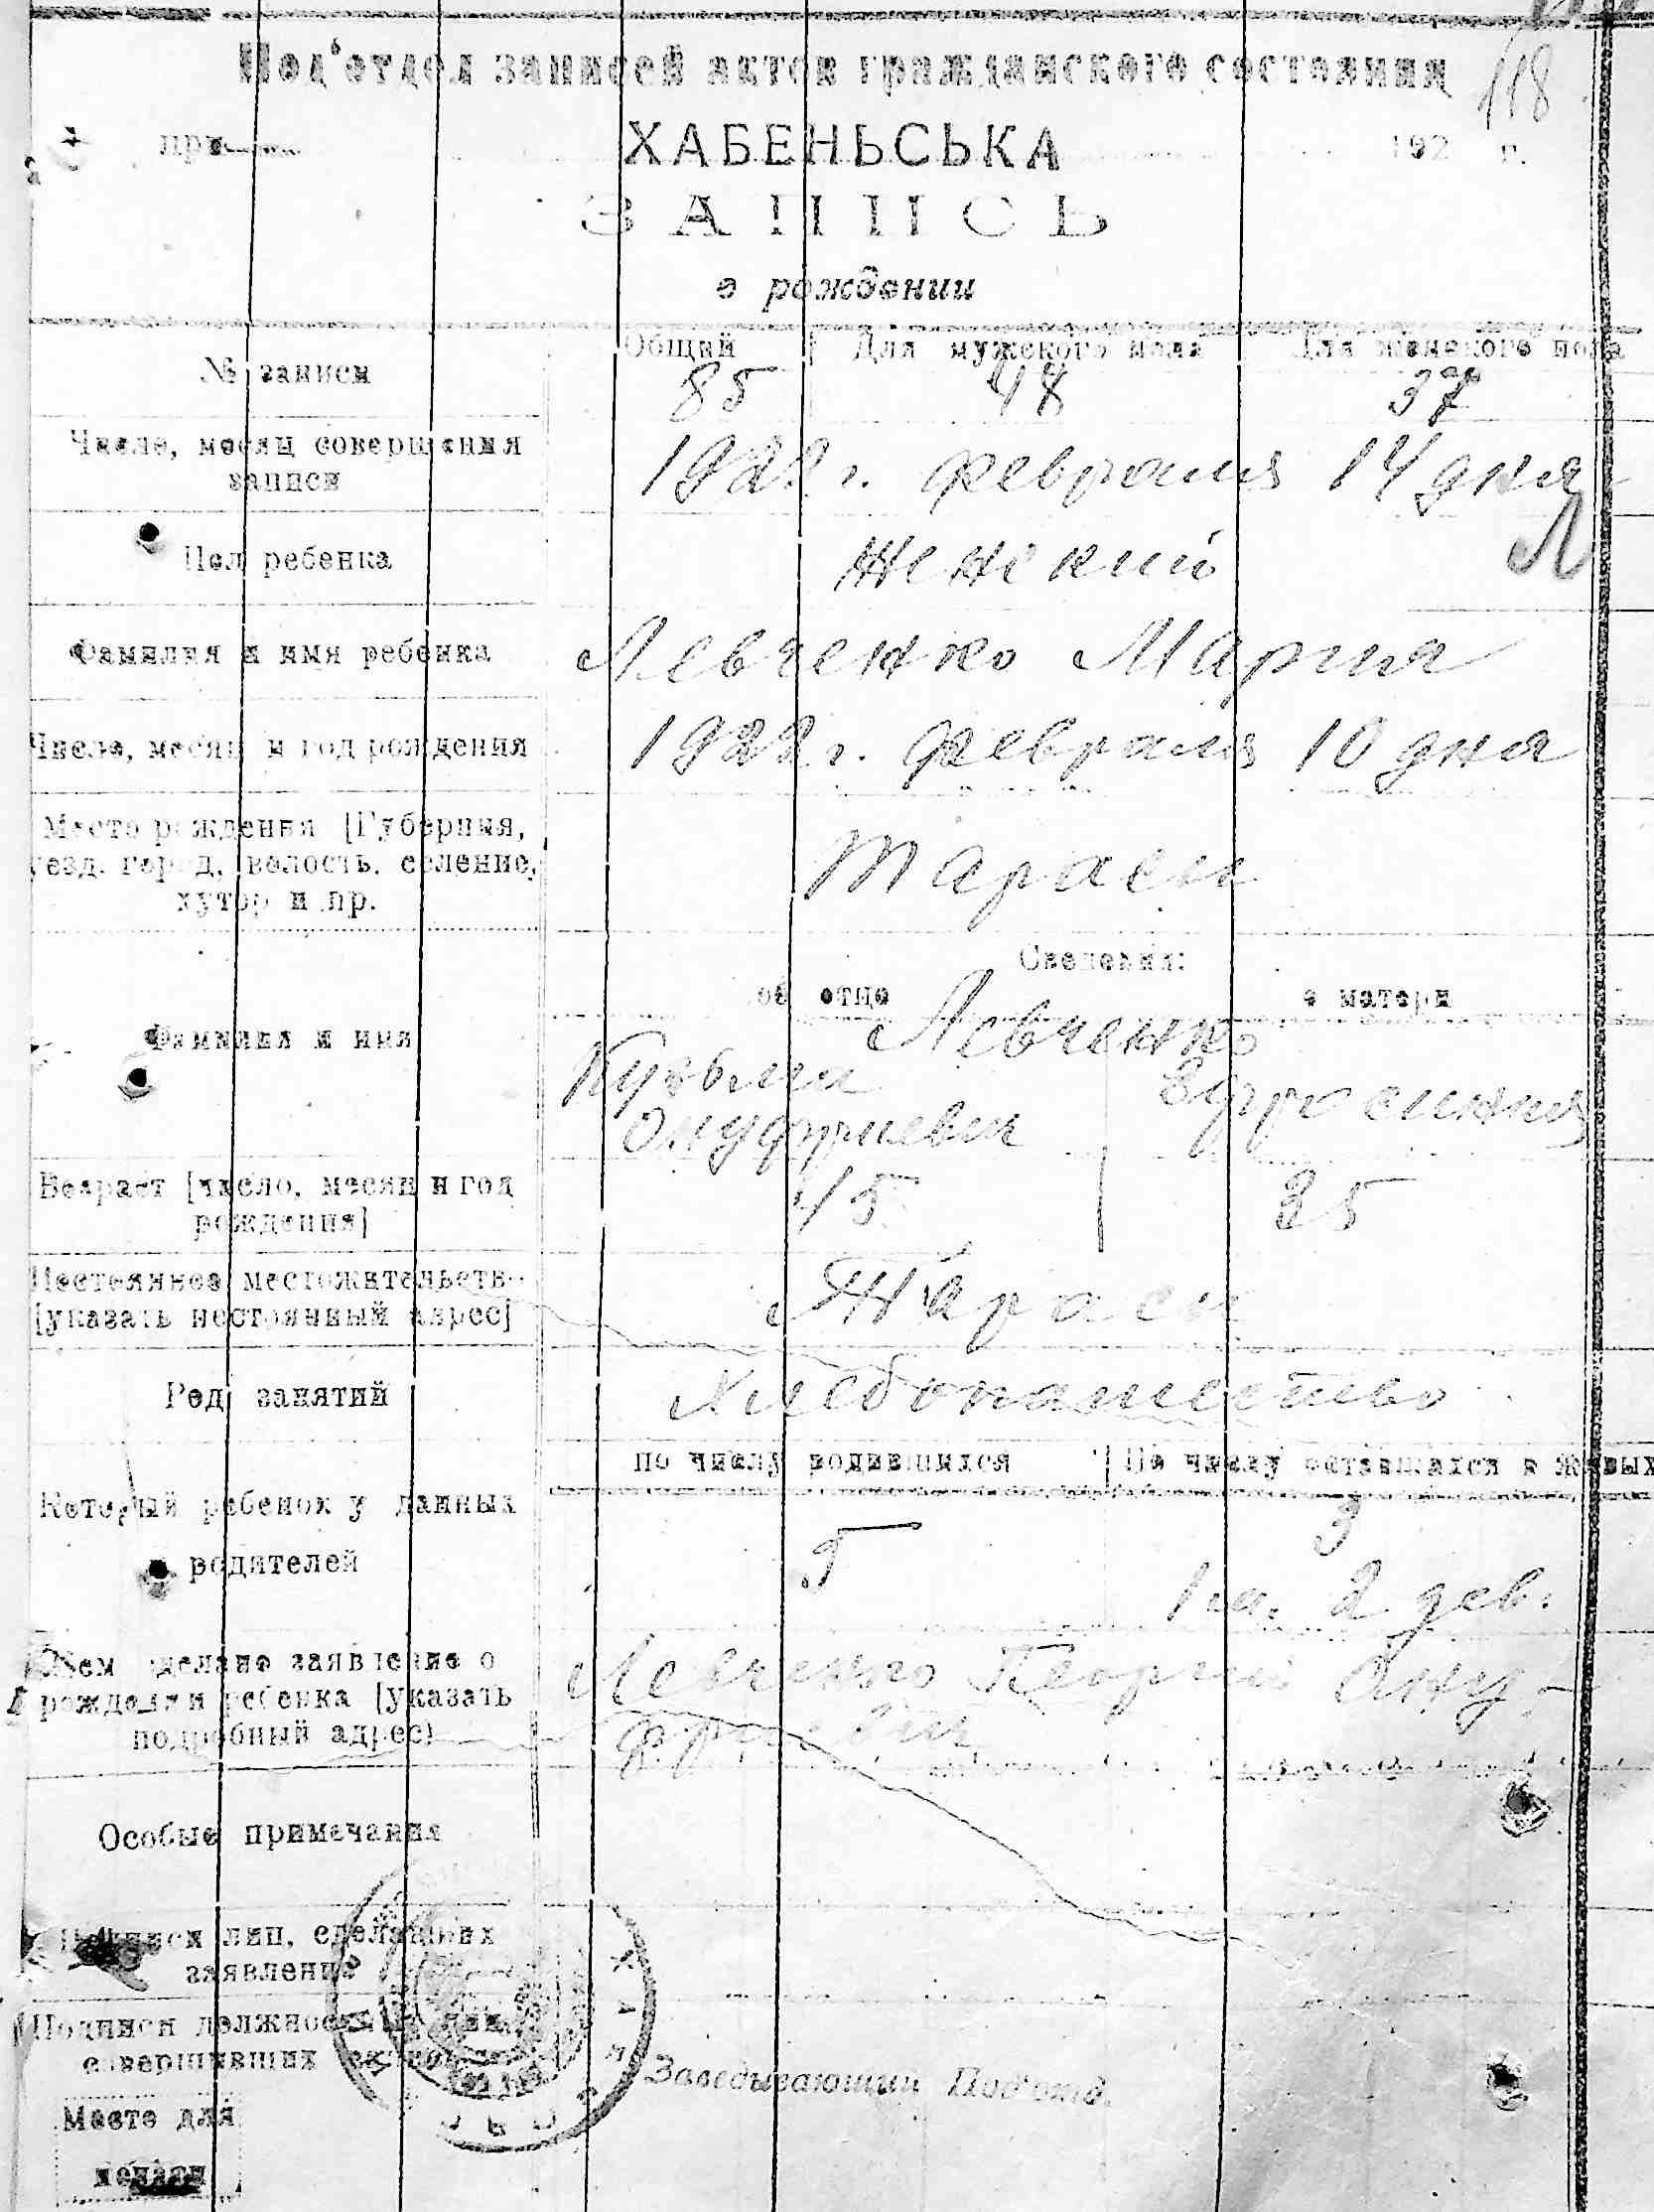 118
Под'отдел записей актов гражданского состояния
при ХАБЕНЬСЬКА 192 г.
ЗАПИСЬ
о рождении
№ записи
Общий Для мужского пола Для женского пола
85 48 37
Число, месяц совершения
записи
1922 г. февраля 14 дня
Л
Пол ребенка
женский
Фамилия и имя ребенка
Левченко Мария
Число, месяц и год рождения
1922 г. февраля 10 дня
Место рождения [Губерния,
уезд, город, волость, селение,
хутор и пр.
Тарасы
Сведения:
об отце о матери
Фамилия и имя
Левченко
Кузьма
Онуфриевич
Ефросиния
Возраст [число, месяц и год
рождения]
45 35
Постоянное местожительство
[указать постоянный адрес]
Тарасы
Род занятий
Хлебопашество
по числу родившихся По числу оставшихся в живых
Который ребенок у данных
родителей
5 3
1 м. 2 дев.
Кем сделано заявление о
рождении ребенка [указать
подробный адрес)
Левченко Георгий Ону-
фриевич
Особые примечания
Подписи лиц, сделавших
заявление
Подписи должностных лиц,
совершивших
Заведывающий Под'отд.
Место для
печати